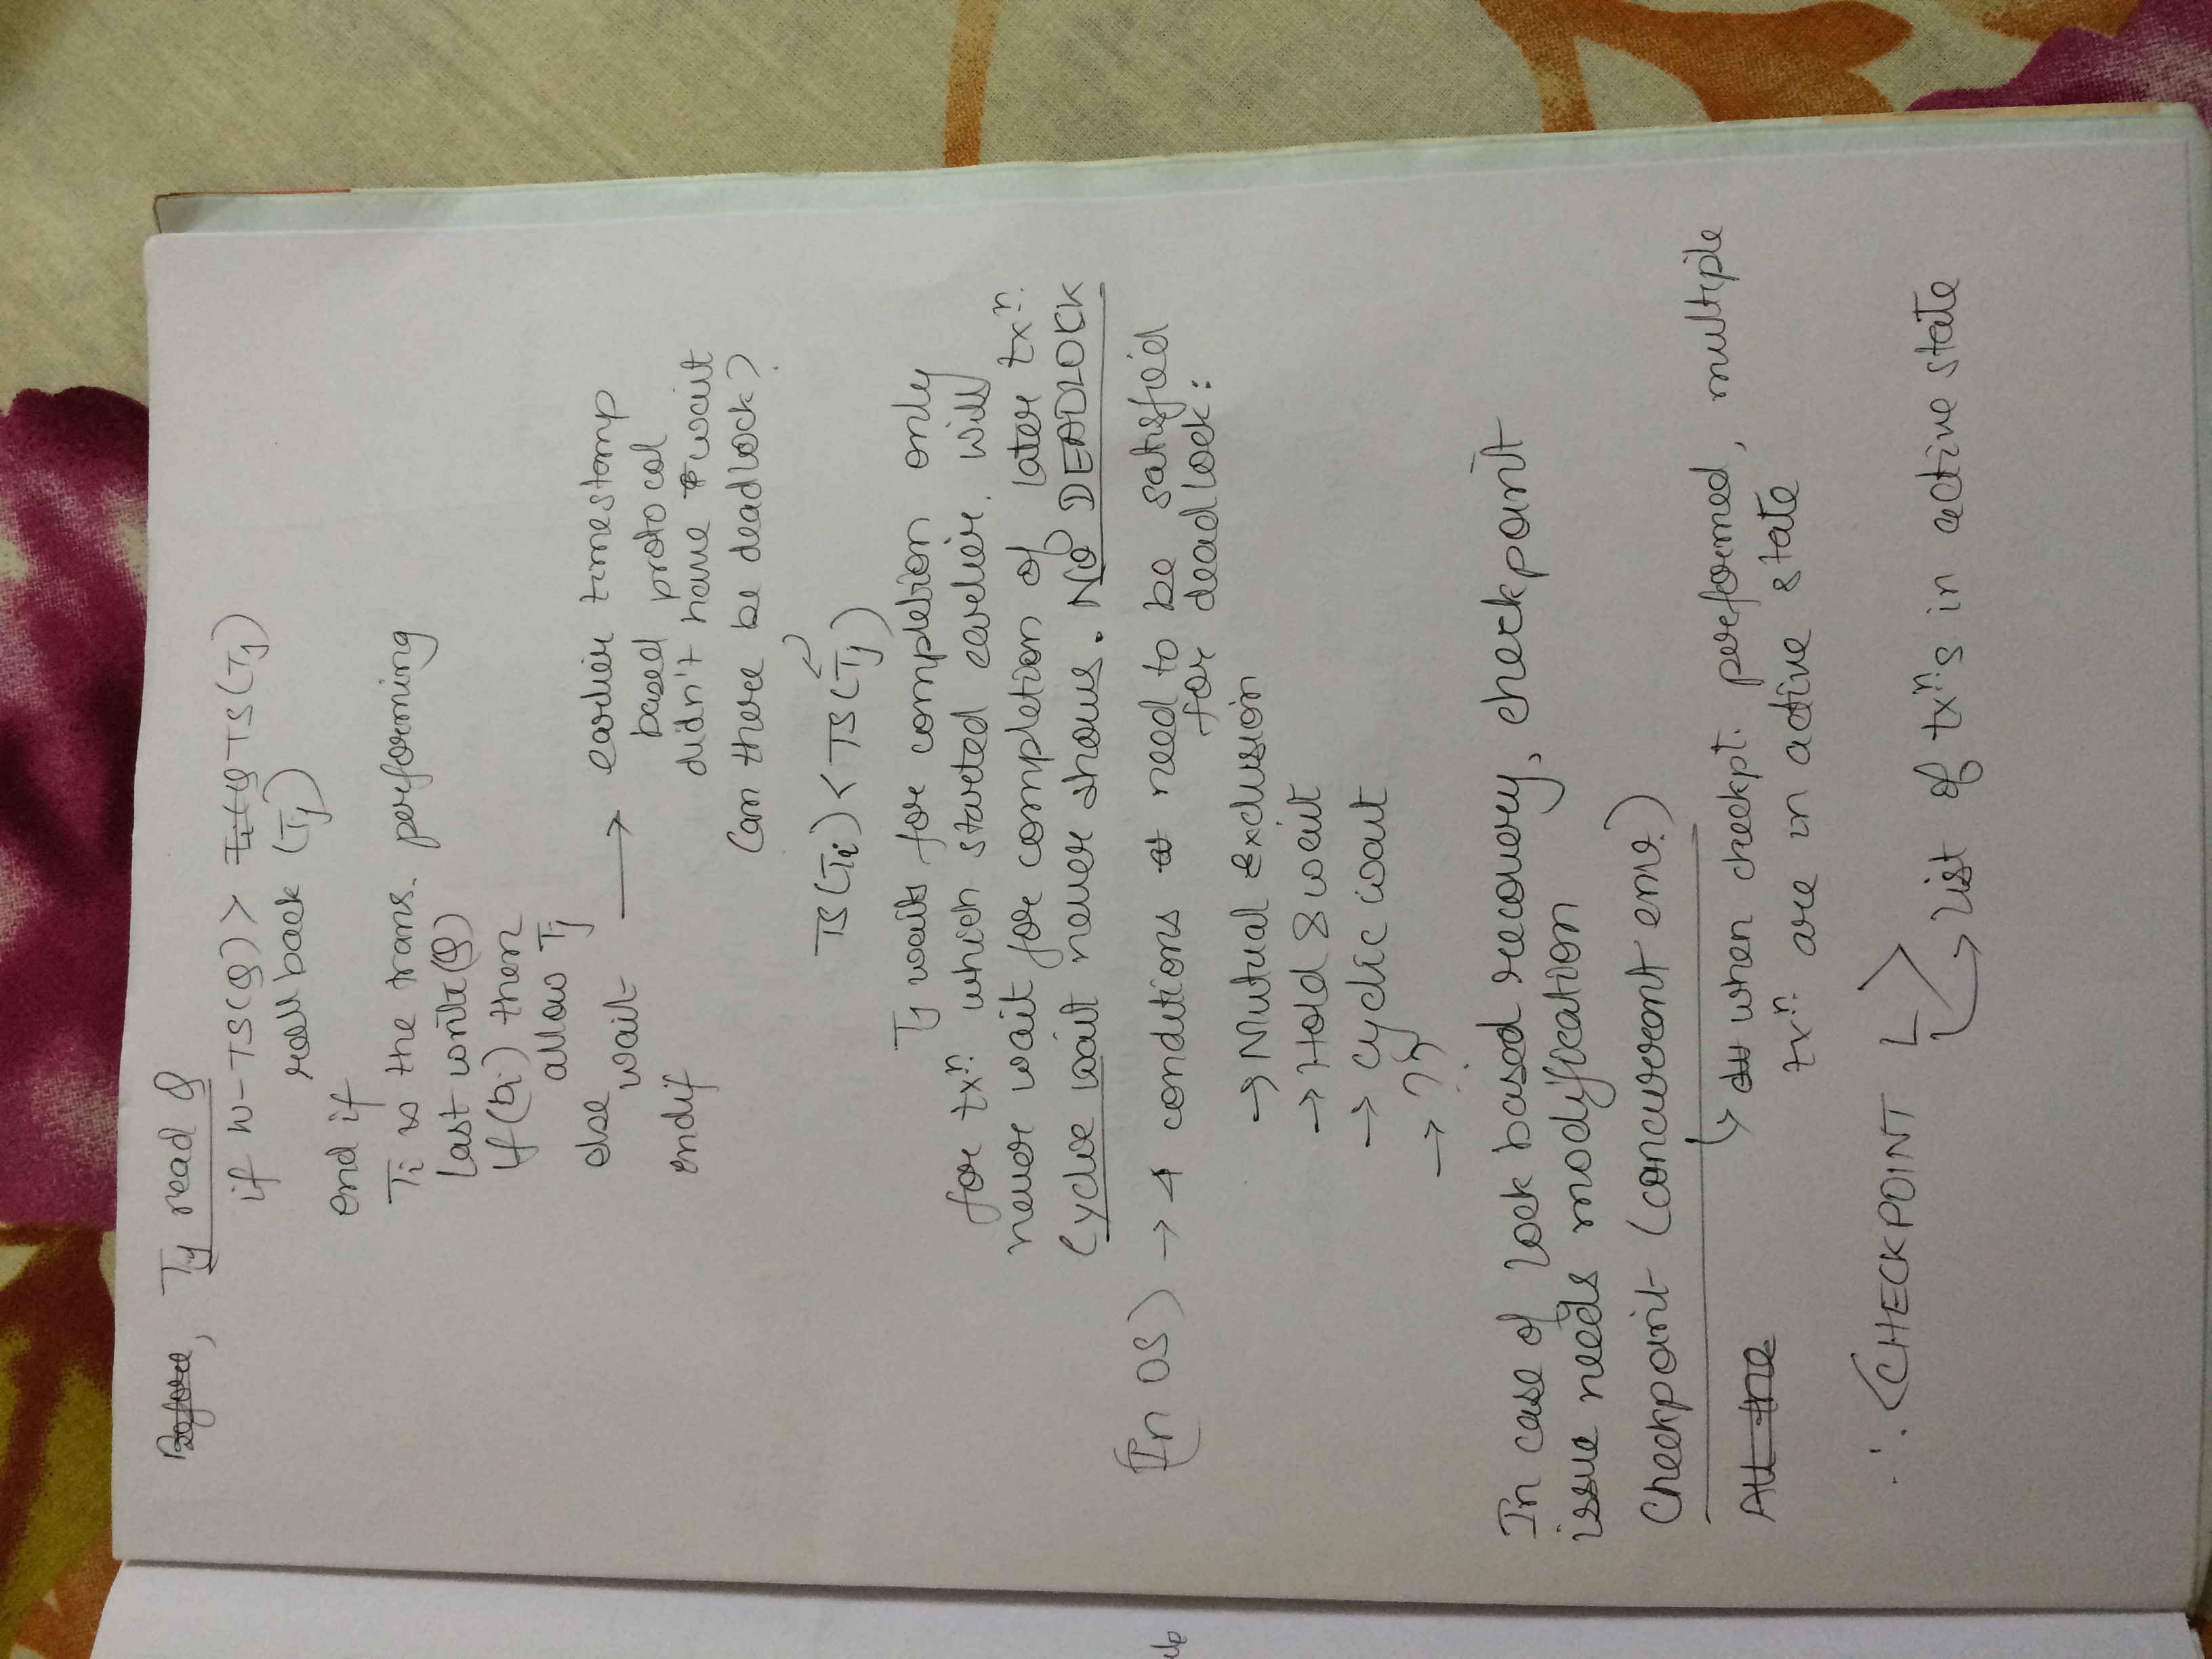 Before, Tj read Q
if W-TS(Q) > Ti(Q TS(Tj)
roll back (Tj)
end if
Ti is the trans. performing
last write(Q)
if (bi) then
allow Tj
else
wait → earlier timestamp
based protocol
endif
didn't have wait
Can there be deadlock?
TS(Ti) < TS(Tj)
Tj waits for completion only
for txn. which started earlier. Will
never wait for completion of later txn.
Cyclic wait never shows. NO DEADLOCK
(In OS) → 4 conditions need to be satisfied
for deadlock:
→ Mutual Exclusion
→ Hold & wait
→ cyclic wait
→ ??
In case of lock based recovery, checkpoint
issue needs modification
Checkpoint (concurrent env.)
All the
↳ when checkpt. performed, multiple
txn. are in active state
∴ <CHECKPOINT L>
↳ list of txn.s in active state